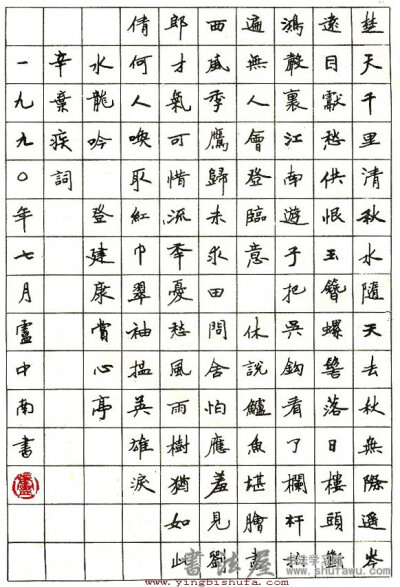 楚天千里清秋水隨天去秋無際遥岑
遠目獻愁供恨玉簪螺髻落日樓頭斷
鴻聲裏江南遊子把吳鈎看了欄杆拍
遍無人會登臨意 休說鱸魚堪膾盡
西風季鷹歸未求田問舍怕應羞見劉
郎才氣可惜流年憂愁風雨樹猶如此
倩何人喚取紅巾翠袖揾英雄淚
水龍吟 登建康賞心亭
辛棄疾詞
一九九〇年七月盧中南書
www.shufawu.com
www.yingbishufa.com